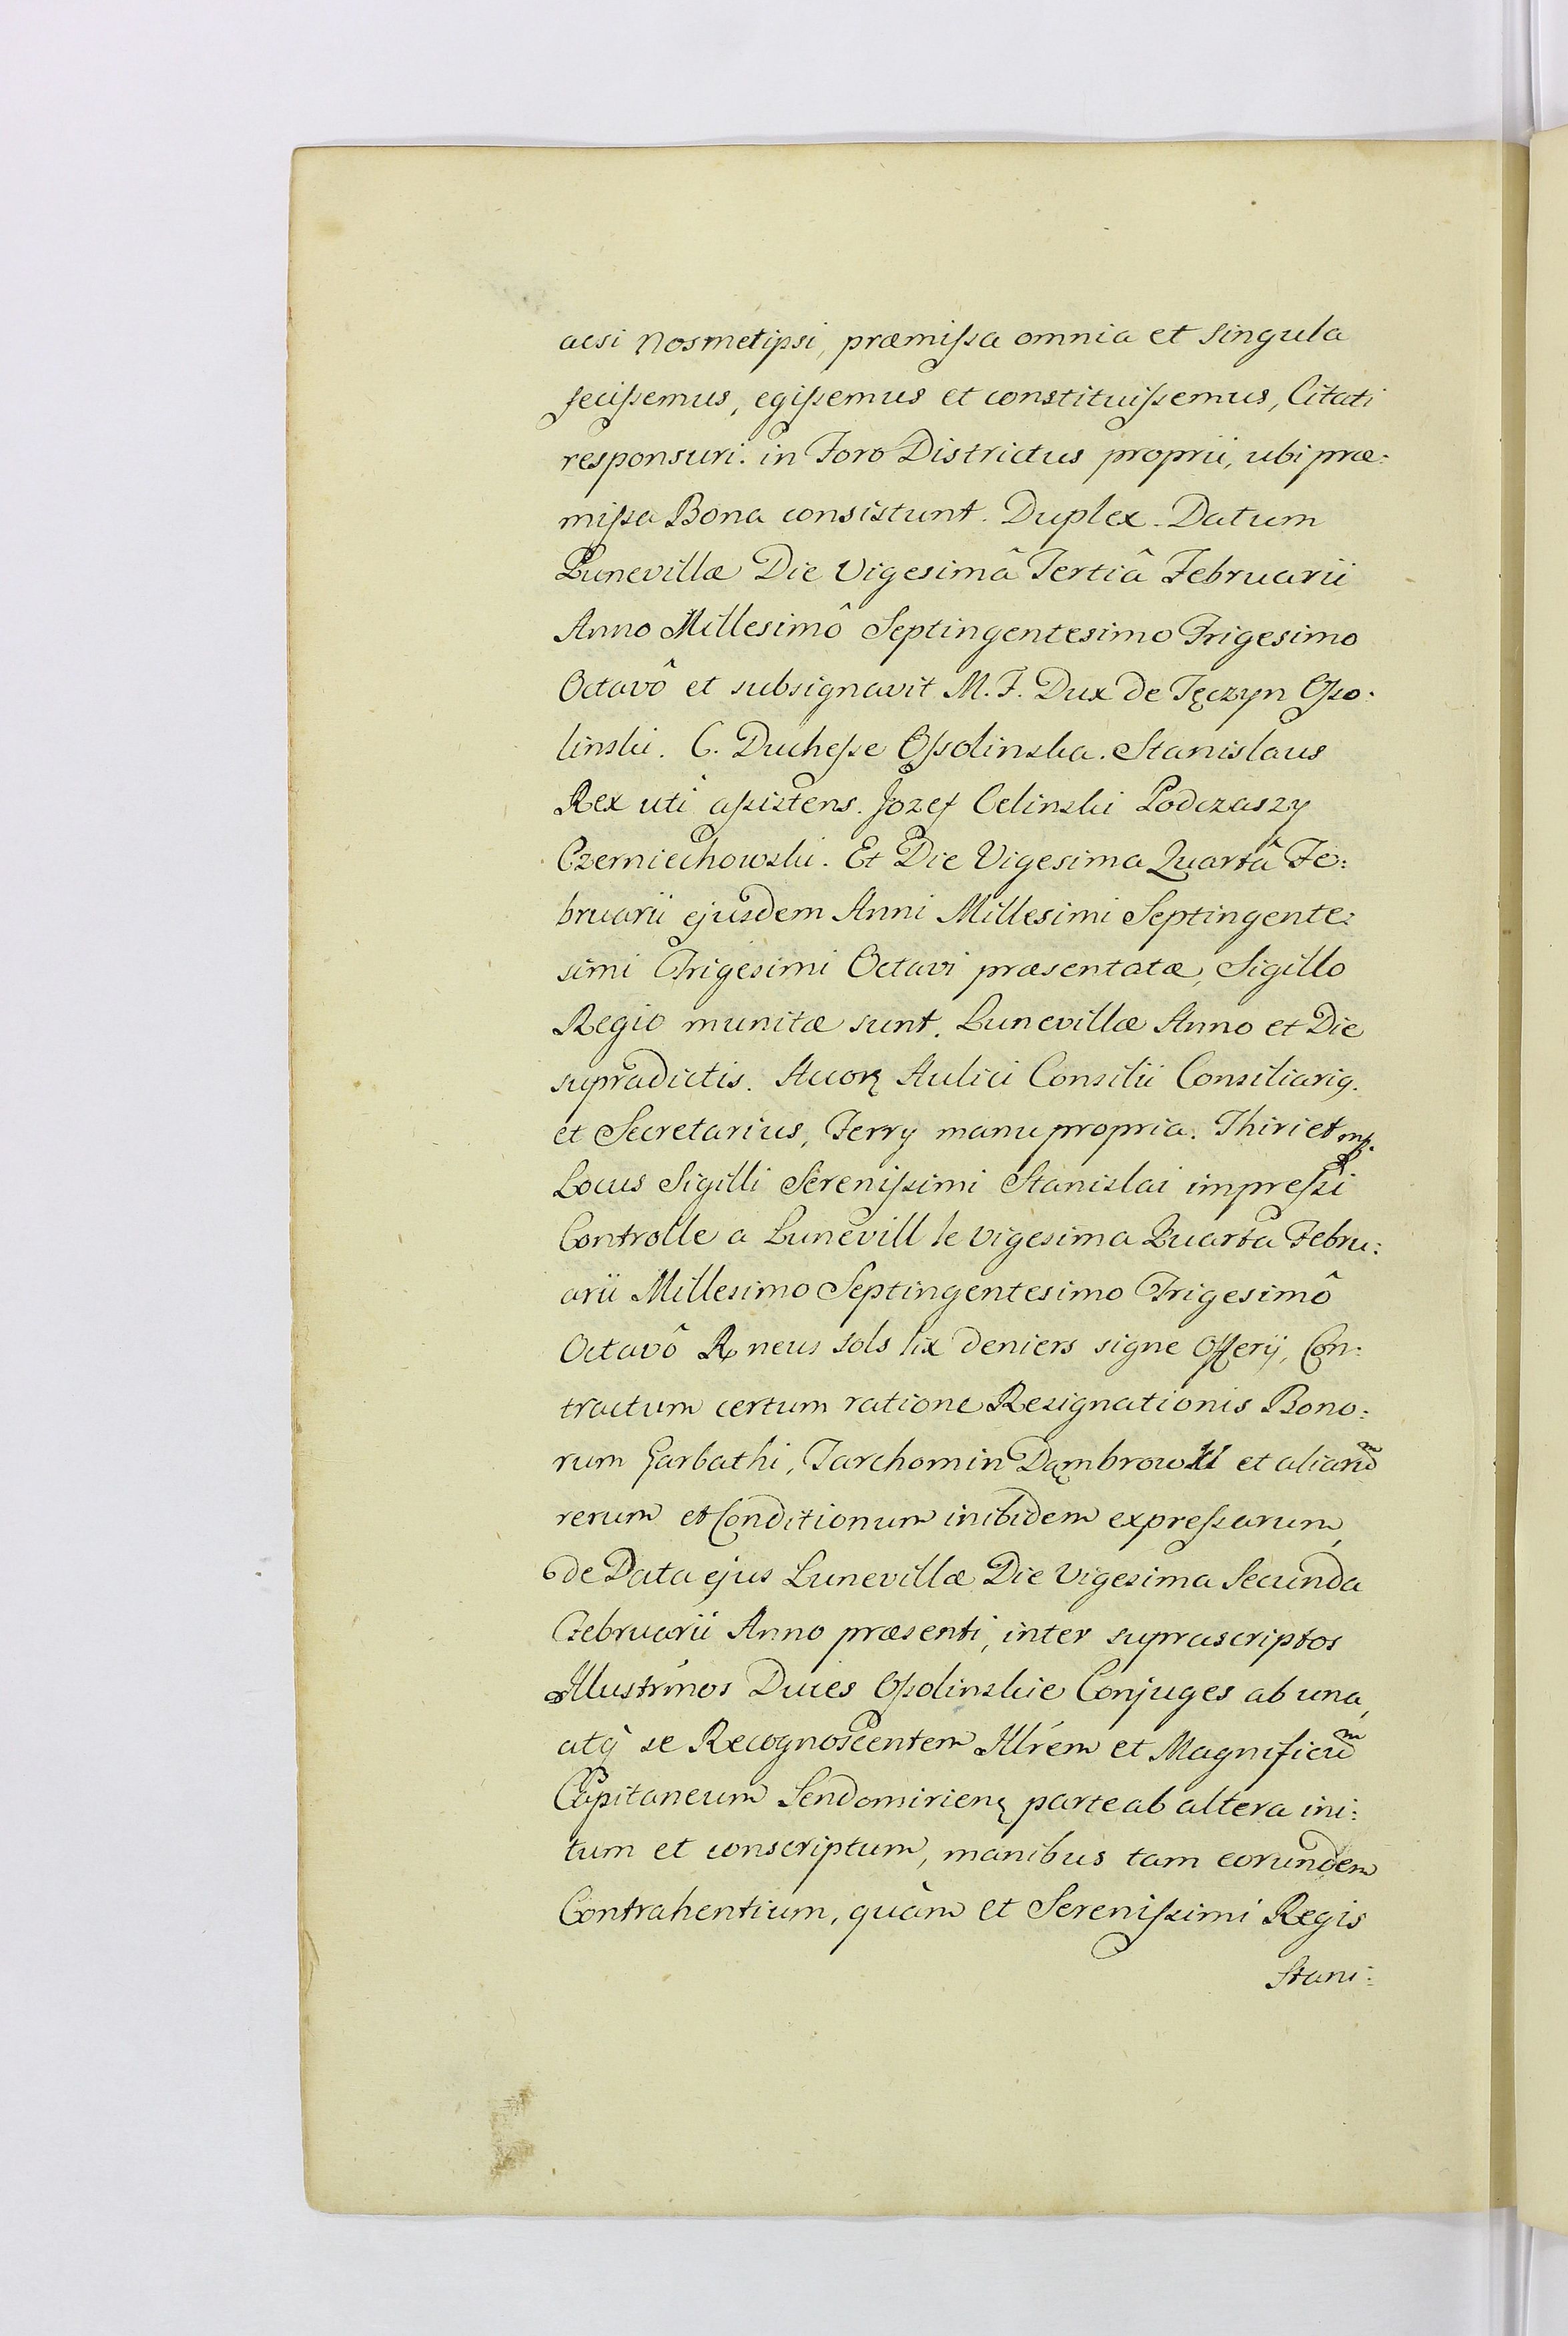 acsi nosmetipsi, præmissa omnia et singula
fecissemus, egissemus et constituissemus, Citati
responsuri. in Foro Districtus proprii, ubi præ:
missa Bona consistunt. Duplex. Datum
Lunevillæ Die Vigesimâ Tertiâ Februarii
Anno Millesimô Septingentesimo Trigesimo
Octavô et subsignavit M. F. Dux de Tęczyn Osso:
linski. C. Duchesse Ossolinska. Stanislaus
Rex uti assistens. Jozef Celinski Podczaszy
Czerniechowski. Et Die Vigesima Quartâ Fe:
bruarii ejusdem Anni Millesimi Septingente:
simi Trigesimi Octavi præsentatæ, Sigillo
Regio munitæ sunt. Lunevillæ Anno et Die
supradictis. Aulici Consilii Consiliariꝯ.
et Secretarius, Ferry manu propria. Thiriet mp.
Locus Sigilli Serenissimi Stanislai impressi
Controlle a Lunevill le vigesima Quarta Febru:
arii Millesimo Septingentesimo Trigesimô
Octavô R neus sols six deniers signe Con:
tractum certum ratione Resignationis Bono:
rum Garbathi, Tarchomin Dąmbrow et aliarum
rerum et Conditionum inibidem expressarum,
de Data ejus Lunevillæ Die Vigesima Secunda
Februarii Anno præsenti, inter suprascriptos
Illustrm̃os Duces Ossolinskie Conjuges ab una,
atq̀ se Recognoscentem Illrem et Magnificum
Capitaneum Sendomirienę parte ab altera ini:
tum et conscriptum, manibus tam eorundem
Contrahentium, quàm et Serenissimi Regis
Stani: